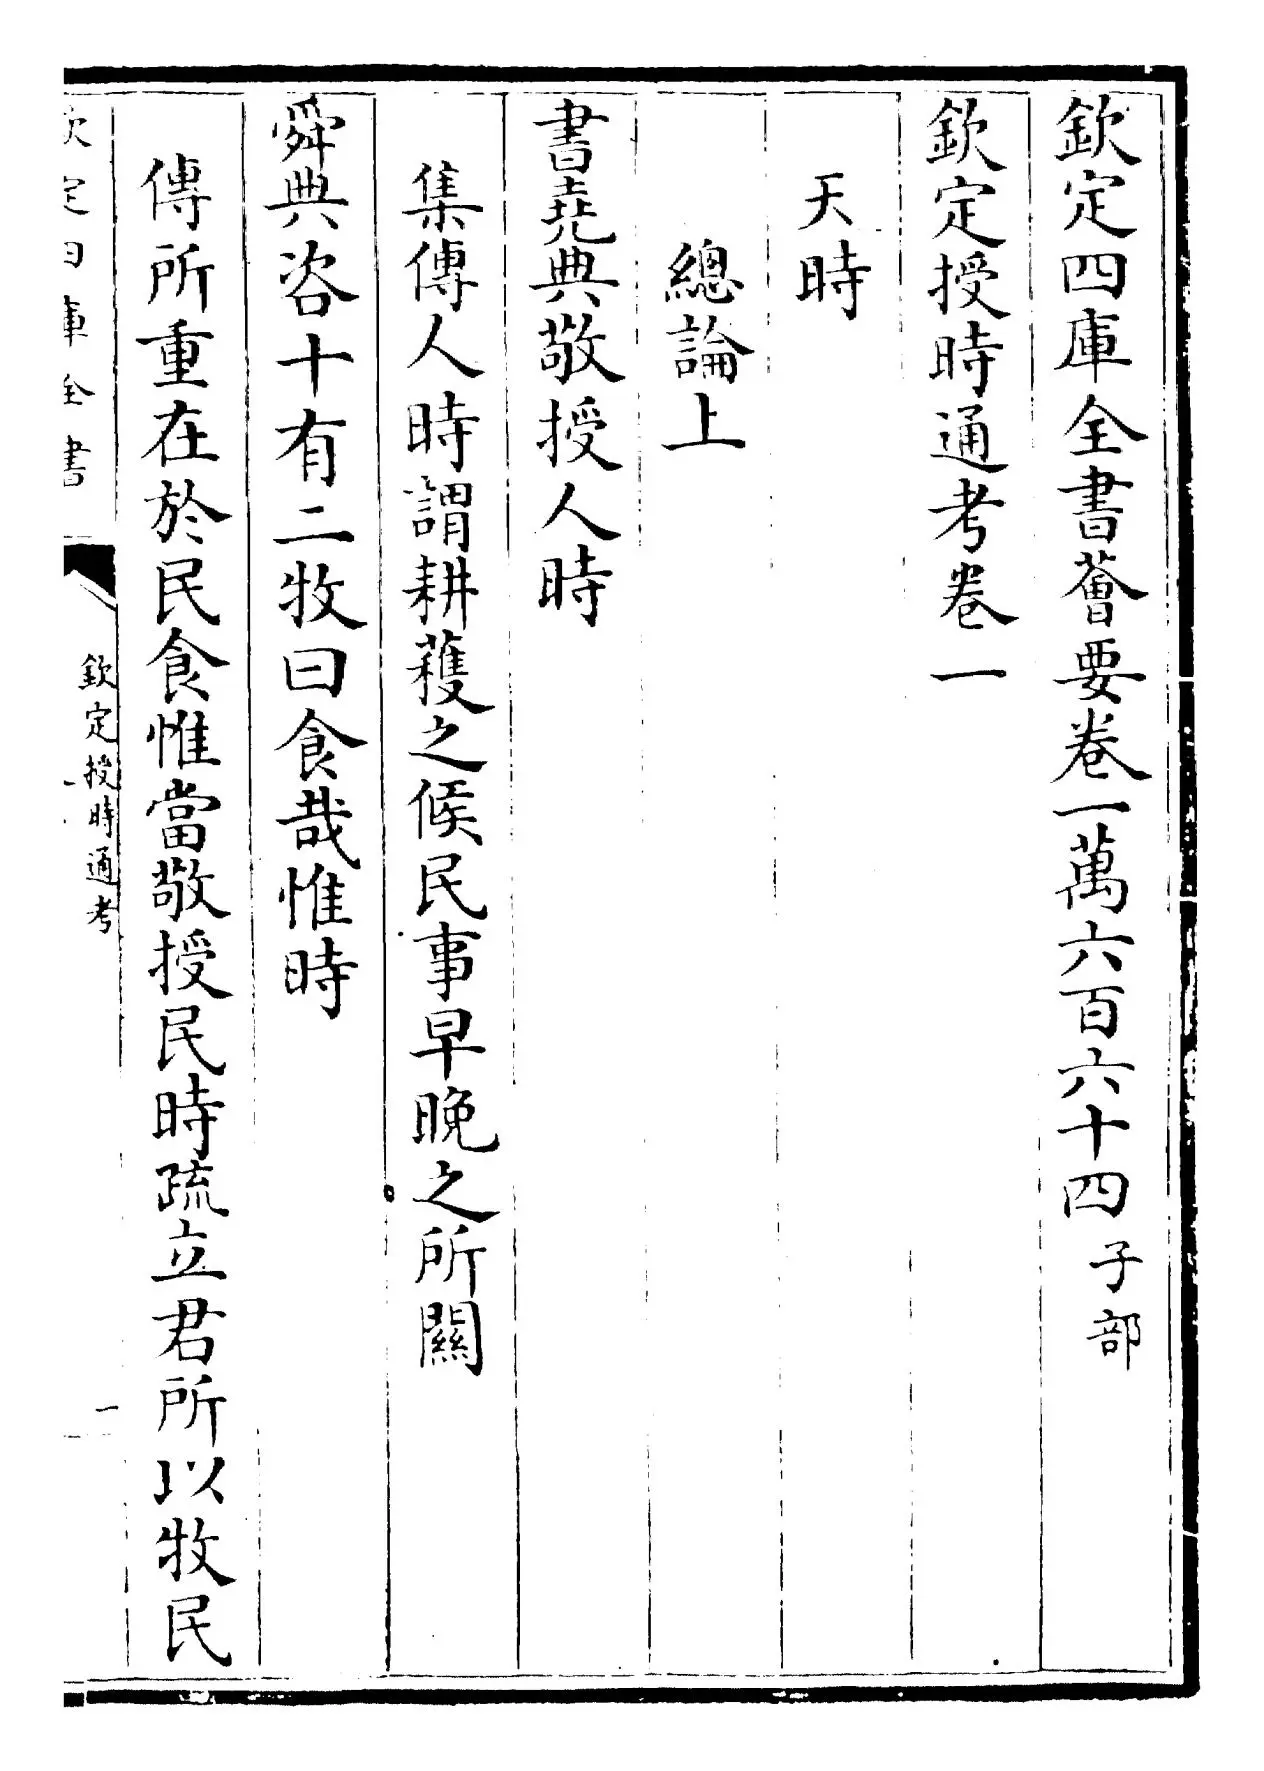 欽定四庫全書薈要卷一萬六百六十四子部
欽定授時通考卷一
天時
總論上
書堯典敬授人時
集傳人時謂耕穫之候民事早晚之所關
舜典咨十有二牧曰食哉惟時
傳所重在於民食惟當敬授民時疏立君所以牧民
欽定四庫全書
欽定授時通考
一